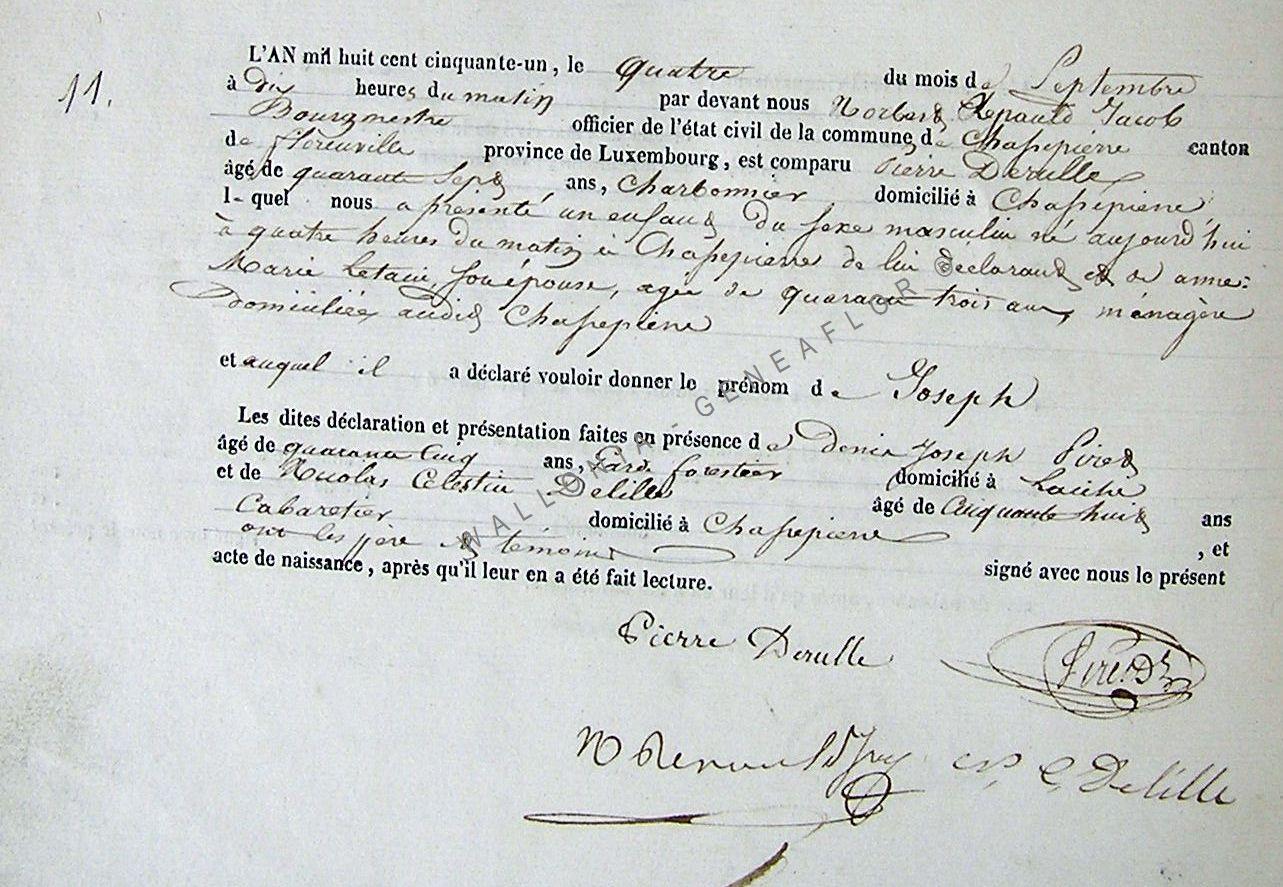 11.
L'AN mil huit cent cinquante-un, le quatre du mois de Septembre
à dix heures du matin par devant nous Norbert Jacob
Bourgmestre officier de l'état civil de la commune de Chassepierre canton
de florenville province de Luxembourg, est comparu Pierre Derulle
âgé de quarante sept ans, Charbonnier domicilié à Chassepierre,
lequel nous a présenté un enfant du sexe masculin né aujourd'hui
à quatre heures du matin à Chassepierre de lui déclarant et de anne:
Marie Son épouse, agée de quarante trois ans, ménagère
Domiciliée audit Chassepierre
et auquel il a déclaré vouloir donner le prénom de Joseph
Les dites déclaration et présentation faites en présence de Denis Joseph Piret
âgé de quarante cinq ans, Garde forestier domicilié à Laiche
et de Nicolas Celestin Delille âgé de Cinquante huit ans
Cabaretier domicilié à Chassepierre , et
ont les père et temoins signé avec nous le présent
acte de naissance, après qu'il leur en a été fait lecture.
Pierre Derulle Piret D
N C Delille
WALLONIA GENEAFLOR ©